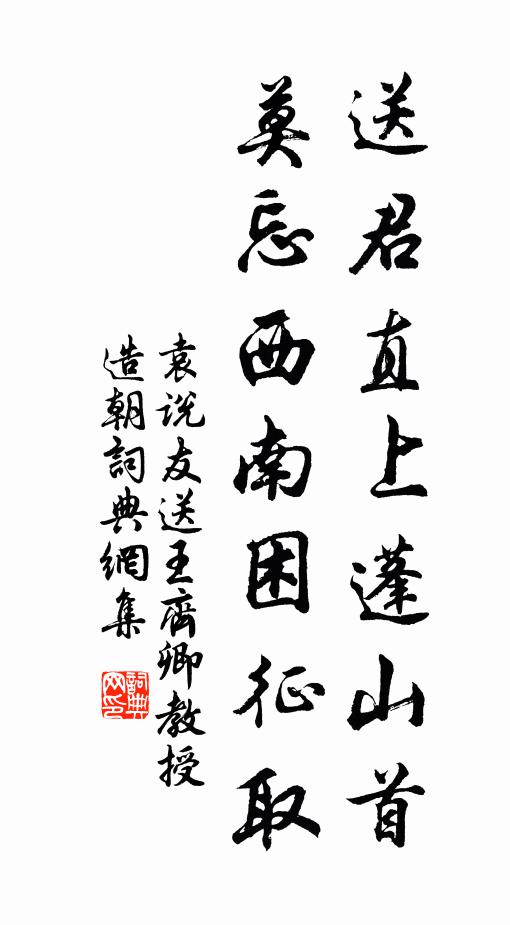 送君直上蓬山首
莫忘西南困征取
袁说友送王齊卿教授
造朝詞典網集
詞典網印